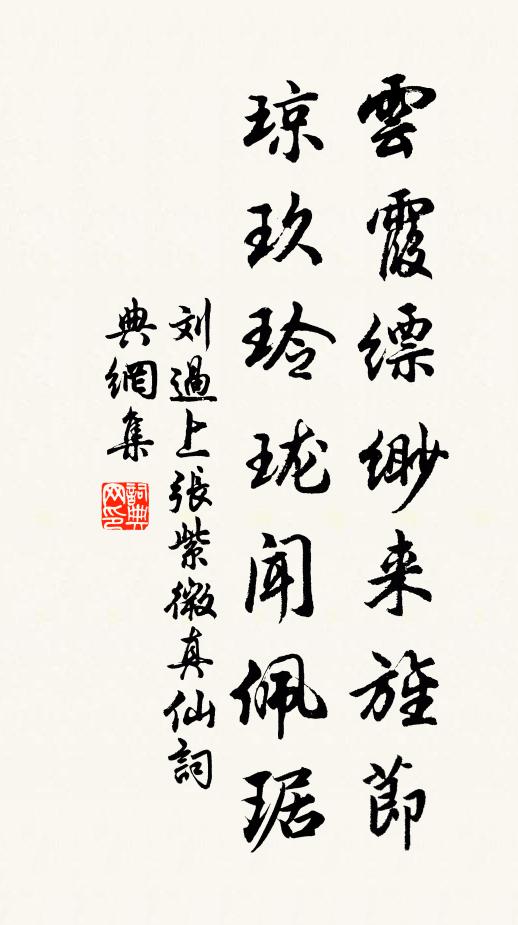 雲霞缥缈来旌節
琼玖玲珑闻佩琚
刘過上張紫微真仙詞
典網集
詞典
网印